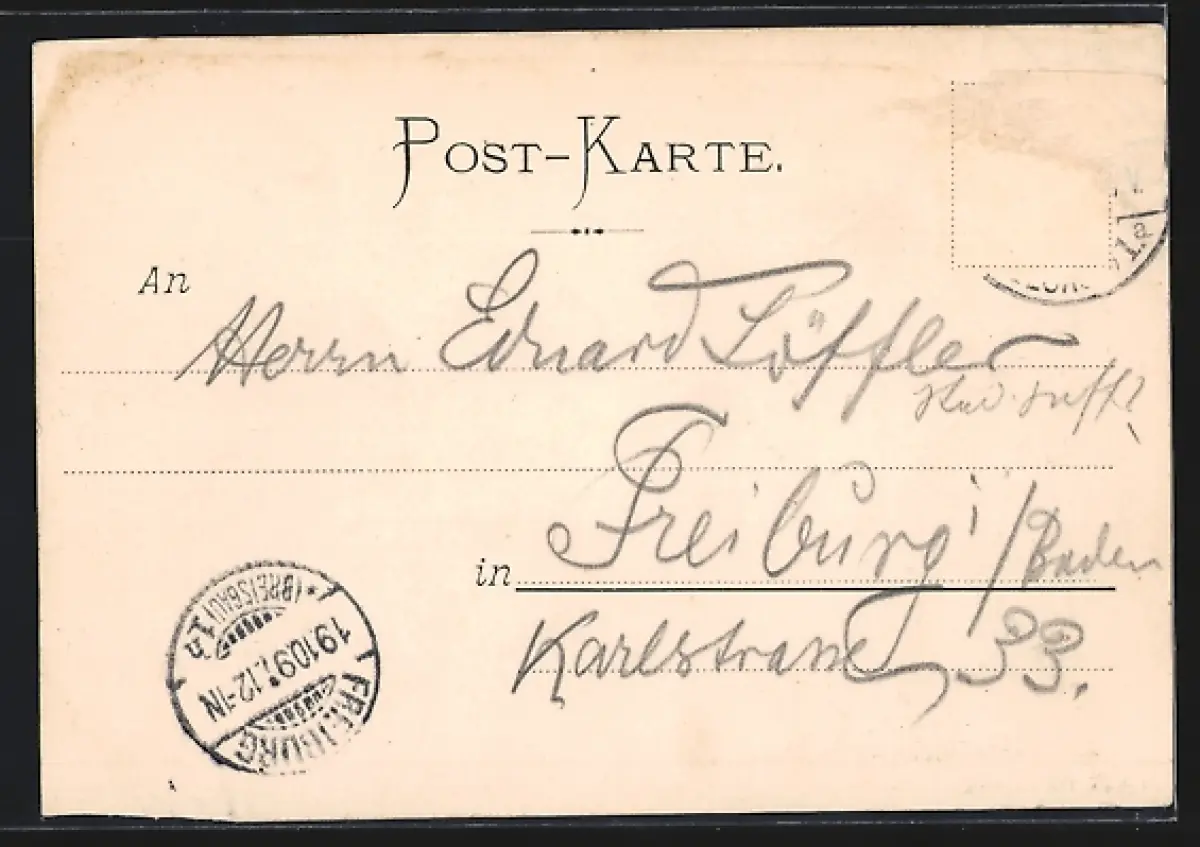 POST-KARTE.
An
Herrn Eduard Löffler
Freiburg i/Baden
in
Karlstrasse 33.
FREIBURG
(BREISGAU) 1
19.10.97. 12-1N